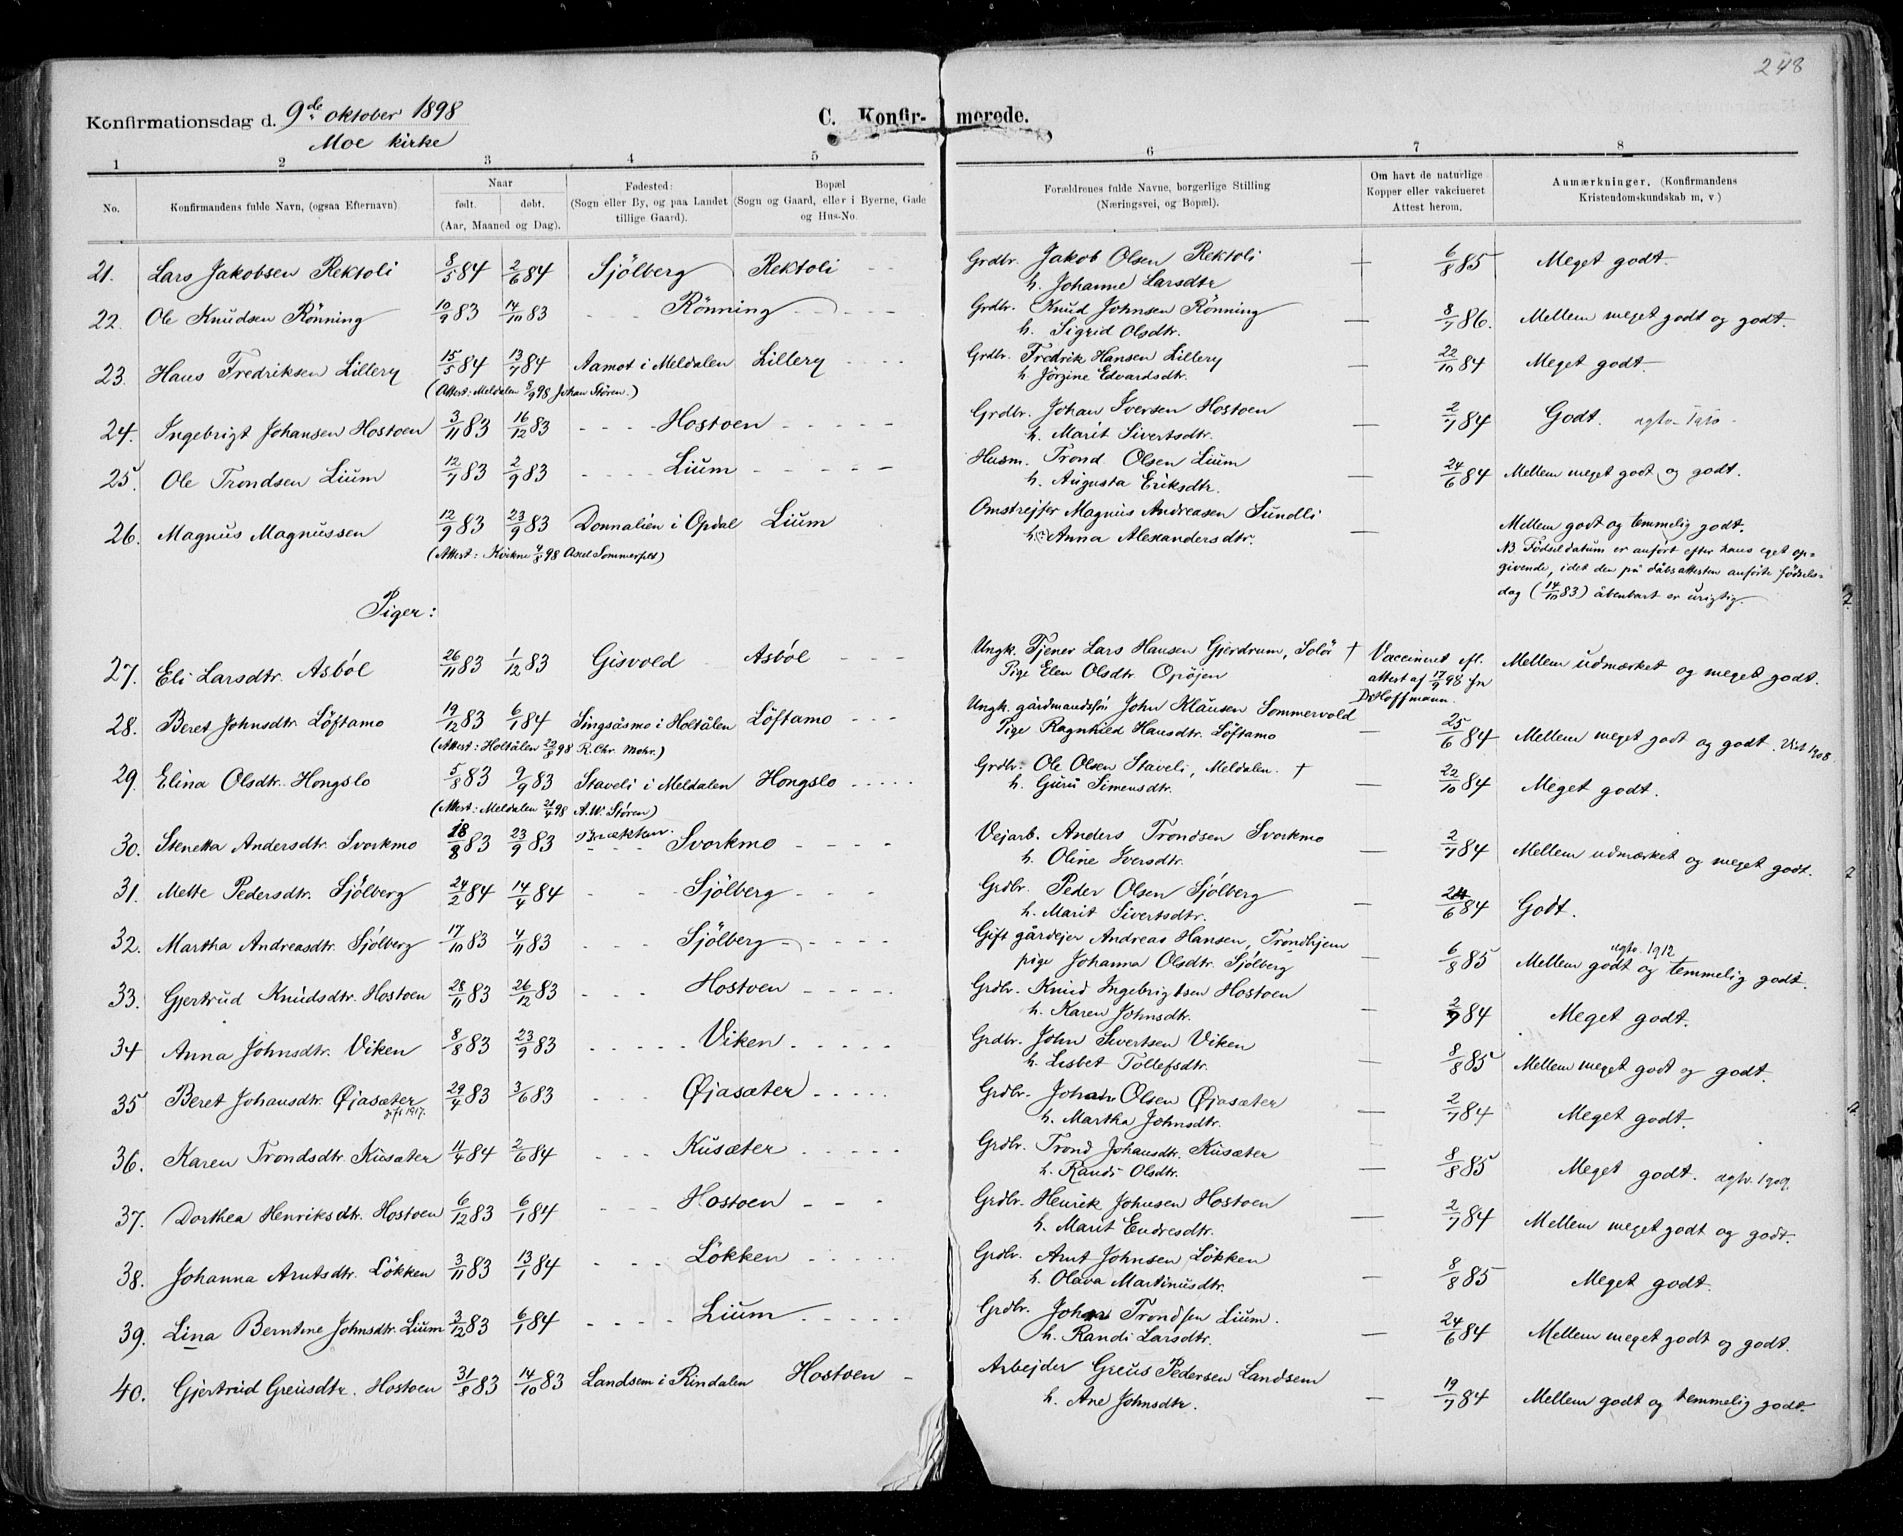 248
Konfirmationsdag d. 9de oktober 1898
Moe kirke
C. Konfir- merede.
1 2 3 4 5 6 7 8
No. Konfirmandens fulde Navn, (ogsaa Efternavn) Naar født. døbt. (Aar, Maaned og Dag). Fødested: (Sogn eller By, og paa Landet tillige Gaard). Bopæl (Sogn og Gaard, eller i Byerne, Gade og Hus-No. Forældrenes fulde Navne, borgerlige Stilling (Næringsvei, og Bopæl). Om havt de naturlige Kopper eller vakcineret Attest herom. Anmærkninger, (Konfirmandens Kristendomskundskab m, v)
21. Lars Jakobsen Rektoli 8/5 84 2/6 84 Sjölberg Rektoli - - Grdbr. Jakob Olsen Rektoli — 6/8 85 Meget godt.
h. Johanne Larsdtr
22. Ole Knudsen Rönning 10/9 83 14/10 83 - - Rönning - - - Grdbr. Knud Johnsen Rönning — 8/7 86. Mellem meget godt og godt.
h. Sigrid Olsdtr.
23. Hans Fredriksen Lillery 15/5 84 13/7 84 Aamot i Meldalen Lillery - - - Grdbr. Fredrik Hansen Lillery — 22/10 84 Meget godt.
(Attest: Meldalen 8/9 98 Johan Stören.) h. Jörgine Edvardsdtr.
24. Ingebrigt Johansen Hostoen 3/11 83 16/12 83 - - - - Hostoen - - - - - Grdbr. Johan Iversen Hostoen — 2/7 84 Godt.
h. Marit Sivertsdtr.
25. Ole Trondsen Lium 12/7 83 2/9 83 - - - - Lium - - - - - Husm. Trond Olsen Lium — 24/6 84 Mellem meget godt og godt.
h. Augusta Eriksdtr.
26. Magnus Magnussen 12/9 83 23/9 83 Donnalien i Opdal Lium Omstreifer Magnus Andreasen Sundli — Mellem godt og temmelig godt.
(Attest: Kvikne 9/8 98 Axel Sommerfeldt) h. Anna Alexandersdtr. NB Födseldatum er anfört efter hans eget op-
givende, idet den på dåbsattesten anförte fødsels-
dag (14/10 83) åbenbart er urigtig.
Piger:
27. Eli Larsdtr. Asböl 26/11 83 1/12 83 Gisvold Asböl - - - Ungk. Tjener Lars Hansen Gjerdrum, Solör † Vaccineret efl. Mellem udmærket og meget godt.
Pige Elen Olsdtr. Opöjen attest af 17/9 98 fr
Dr Hoffmann.
28. Beret Johnsdtr. Löftamo 19/12 83 6/1 84 Singsåsmo i Holtålen Löftamo - - - Ungk. gårdmandssön John Klausen Sommervold — 25/6 84 Mellem meget godt og godt. Vist 1908.
(Attest: Holtålen 22/8 98 R. Chr. Mohr.) Pige Ragnhild Hansdtr. Löftamo
29. Elina Olsdtr. Hongslo 5/8 83 9/9 83 Staveli i Meldalen Hongslo - - - - Grdbr. Ole Olsen Staveli, Meldalen. † — 22/10 84 Meget godt.
(Attest: Meldalen 21/4 98 A.W. Stören) h. Guru Simensdtr.
30. Stenetta Andersdtr. Svorkmo 18/8 83 23/9 83 Svorkmo - - - - Vejarb. Anders Trondsen Svorkmo — 2/7 84 Mellem udmærket og meget godt.
h. Oline Iversdtr.
31. Mette Pedersdtr. Sjölberg 24/2 84 14/4 84 - - - Sjölberg - - - Grdbr. Peder Olsen Sjölberg — 24/6 84 Godt.
h. Marit Sivertsdtr.
32. Martha Andreasdtr. Sjölberg 17/10 83 4/11 83 - - Sjölberg - - - - Gift gårdejer Andreas Hansen, Trondhjem — 6/8 85 Mellem godt og temmelig godt.
pige Johanna Olsdtr. Sjölberg agtv. 1912
33. Gjertrud Knudsdtr. Hostoen 28/11 83 26/12 83 - - - Hostoen - - - - Grdbr. Knud Ingebrigtsen Hostoen — 2/7 84 Meget godt.
h. Karen Johnsdtr.
34 Anna Johnsdtr. Viken 8/8 83 23/9 83 - - - - - Viken - - - - - Grdbr. John Sivertsen Viken — 8/8 85 Mellem meget godt og godt.
h. Lisbet Tollefsdtr.
35 Beret Johansdtr. Øjasæter 29/4 83 3/6 83 - - - Øjasæter - - - - Grdbr. Johan Olsen Øjasæter — 2/7 84 Meget godt.
gift 1917. h. Martha Johnsdtr.
36. Karen Trondsdtr. Kusæter 11/4 84 2/6 84 - - - Kusæter - - - - - Grdbr. Trond Johansdtr. Kusæter — 8/8 85 Meget godt. agtv. 1909.
h. Randi Olsdtr.
37. Dorthea Henriksdtr. Hostoen 6/12 83 6/1 84 - - - Hostoen - - - Grdbr. Henrik Johnsen Hostoen — 2/7 84 Mellem meget godt og godt.
h. Marit Endresdtr.
38. Johanna Arntsdtr. Lökken 3/11 83 13/1 84 - - - Lökken - - - - Grdbr. Arnt Johnsen Lökken — 8/8 85 Meget godt.
h. Olava Martinusdtr.
39. Lina Berntine Johnsdtr. Lium 2/12 83 6/1 84 - - - - Lium - - - - - Grdbr. Johan Trondsen Lium. — 24/6 84 Mellem meget godt og godt.
h. Randi Larsdtr.
40. Gjertrud Greusdtr. Hostoen 31/8 83 14/10 83 Landsem i Rindalen Hostoen - Arbejder Greus Pedersen Landsem — 19/7 84 Mellem godt og temmelig godt.
h. Ane Johnsdtr.